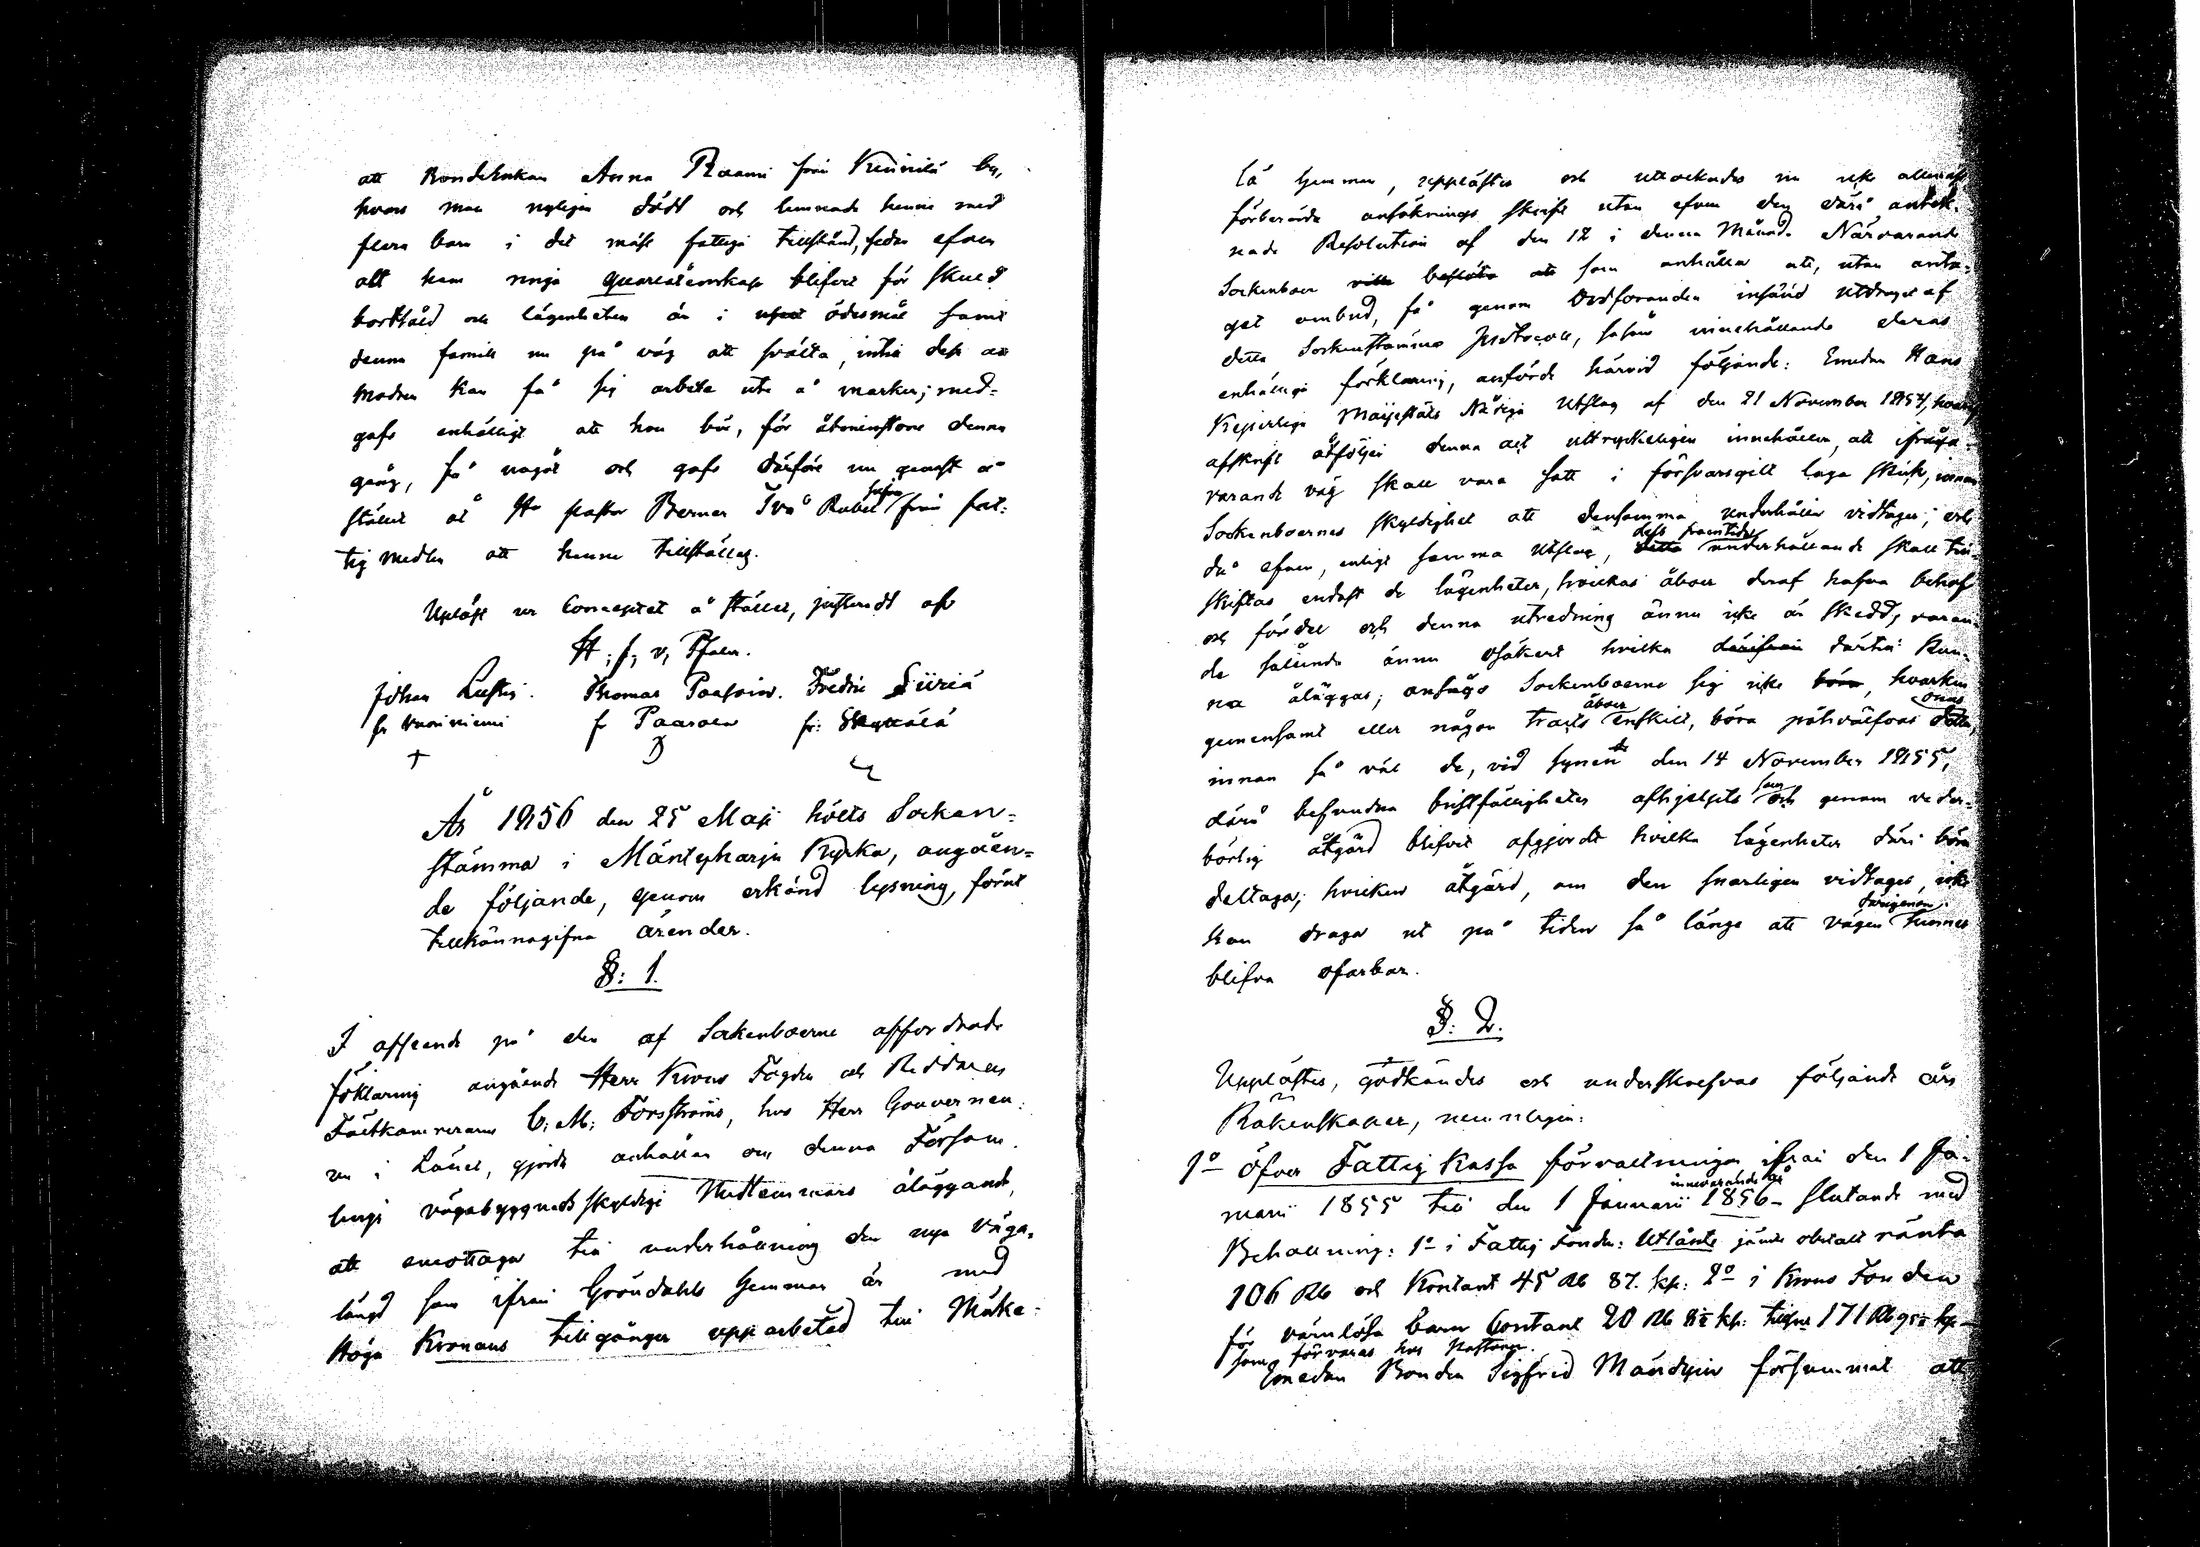 att Bondenkan Anna Raami från Kuinilä by,
hvars man nyligen dödt och lemnade henne med
flera barn i det mäst fattiga tillstånd, sedan efven
all hans ringa quarlåtenskap blifvit för skuld
bortsåld och lägenheten är i ödesmål samt
denna famille nu på väg att svälta, intill dess at
modren kan få sig arbete ute å marken; med=
gafs enhälligt att hon bör, för åtminstone denna
gång, få något och gafs därföre nu genast å
stället åt Hr pastor Berner Två Rubel silfver från fat=
tig medlen att henne tillställas.
Upläst ur Conceptet å stället, justeradt af
H. f. v. Pfaler.
Johan Lustig. Thomas Paasoin. Fredric Siiriä
fr Vuoriniemi fr Paasoen fr: Skyttälä
År 1856 den 25 Maji hölts Socken=
stämma i Mäntyharju Kyrka, angåen=
de följande, genom erkänd lysning, förut
tillkännagifna ärender.
§: 1.
I afseende på den af Sockenboerne affordrade
föklaring angående Herr Krono Fogden och Riddaren
Fältkamrerarens C: M: Forsströms, hos Herr Gouverneu=
ren i Länet, gjorde anhållan om denna Försam=
lings vägabyggnads skyldige Medlemmars åläggande,
att emottaga till underhållning den nya väga=
längd som ifrån Gröndahls hemman är med
Höga Kronans tillgångar upparbetad till Mäke=
lä hemman, uppläste och utvecklades nu icke allenast
förberörde ansöknings skrift utan efven den därå anteck=
nade Resolution af den 12 i denna Månad. Närvarande
Sockenboer ville besluta att som anhålla att, utan anta=
get ombud, få genom Ordföranden insänd utdraget af
detta Sockenstämmo Protocoll, såsom innehållande deras
enhälliga förklaring, anförde härvid följande: Emedan Hans
Kejserliga Majjestäts Nådiga Utslag af den 21 November 1854, hvaraf
afskrift åtföljer denna act uttryckeligen innehåller, att ifråga=
varande väg skall vara satt i försvarsgilt laga skick, innan
Sockenboernes skyldighet att densamma underhålla vidtager; och
då efven, enligt samma Utslag, detta dess framtida underhållande skall till=
skiftas endast de lägenheter, hvilkas åboer deraf hafva behof
och fördel och denna utredning ännu icke är skedd, varan=
de sålunda ännu osäkert hvilka därifrån därtill kun=
na åläggas; ansågo Sockenboerne sig icke böra, hvarken
gemensamt eller någon tracts åboer enskilt, böra påhvälfvas detta onus
innan så väl de, vid synen den 14 November 1855,
därå befundna bristfälligheter afhjelpts som och genom veder=
börlig åtgärd blifvit afgjordt hvilka lägenheter däri böra
deltaga; hvilken åtgärd, om den snarligen vidtages, icke
kan draga ut på tiden så länge att vägen därigenom hinner
blifva ofarbar.
§: 2.
Upplästes, godkändes och underskrefvos följande års
Räkenskaper, nemnligen:
1o Öfver Fattig Kassa förvaltningen ifrån den 1 Ja=
nuarii 1855 till den 1 Januarii innevarande år 1856 slutande med
Behållning: 1o i Fattig Fonden: Utlånte jämte obetalt ränta
106 Rb och Kontant 45 Rb 87. kp: 2o i Krono Fonden
för värnlösa barn Contant 20 Rb kp: tillsm 171 Rb kp
som förvaras hos Pastorn.
Emedan Bonden Sigfrid Mändynin försummat att